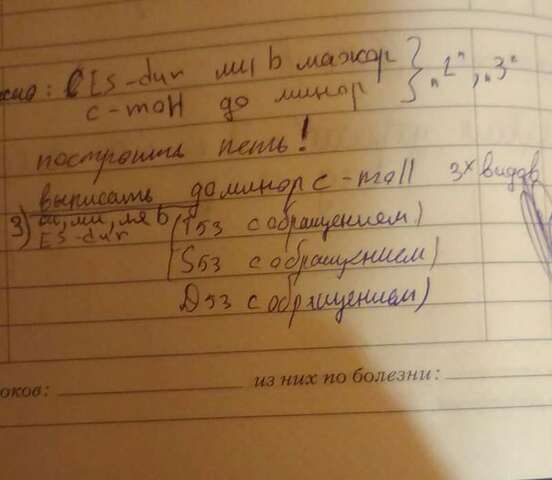 Es-dur ми b мажор } "1", "3"
c-moll до минор
построили петь!
выписать до минор c-moll 3х видов
3) си, ми, ля b (T53 с обращением)
Es-dur (S53 с обращением)
D53 с обращением)
оков: из них по болезни: